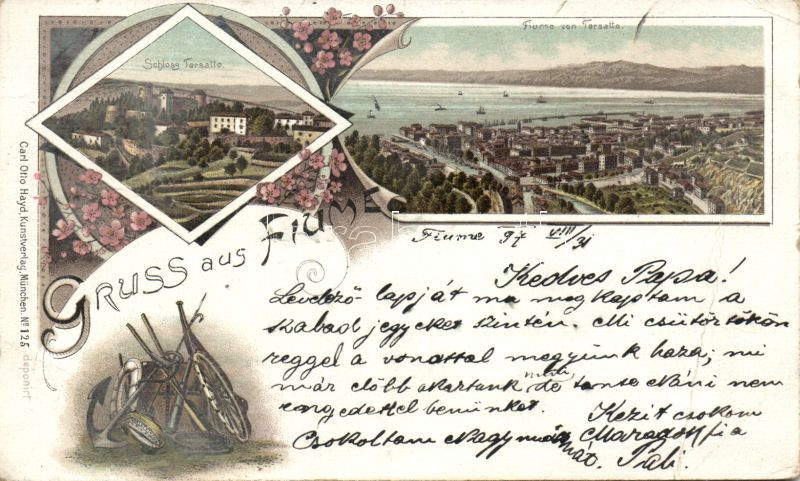 Schloss Tersatto.
Fiume von Tersatto.
Gruss aus Fiume
Carl Otto Hayd, Kunstverlag, München. No 125 deponirt
Fiume 97 VIII/31
Kedves Papa!
Levelező-lapját ma megkaptam a
szabad jegyeket szintén. Mi csütörtökön
reggel a vonattal megyünk haza; mi
már előbb akartunk menni de néni nem
engedett el bennünket.
Kezit csokom
Csokoltam Nagymamat. Maragok fia
Pali.